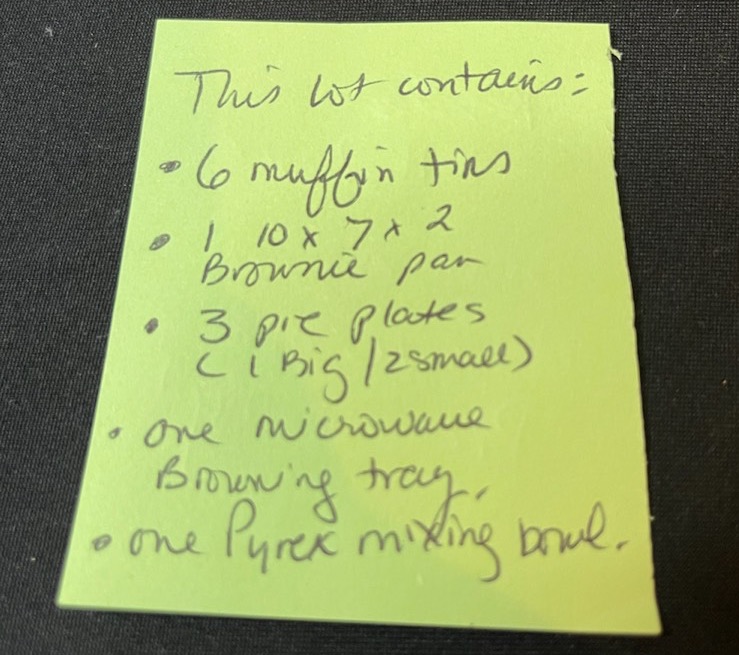 This lot contains:
• 6 muffin tins
• 1 10 x 7 x 2
Brownie pan
• 3 pie plates
( 1 Big / 2 small )
• one microwave
Browning tray.
• one Pyrex mixing bowl.